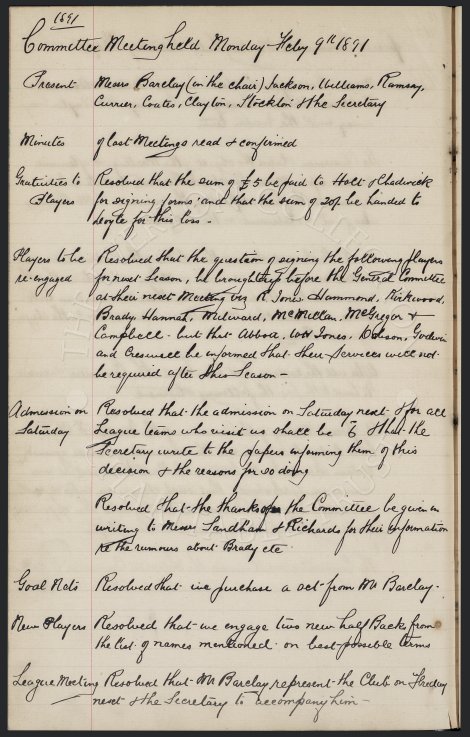 1891
Committee Meeting held Monday Feby 9th 1891
Present Messrs Barclay (in the chair) Jackson, Williams, Ramsay,
Currier, Coates, Clayton, Stockton & the Secretary
Minutes of last Meetings read & confirmed
Gratuities to Resolved that the sum of £5 be paid to Holt & Chadwick
Players for signing forms and that the sum of 20/- be handed to
for his loss -
Players to be Resolved that the question of signing the following players
re-engaged for next Season, be brought before the General Committee
at their next Meeting viz R. Jones Hammond, Kirkwood,
Brady, Hannah, Milward, McMillan, McGregor &
Campbell - but that Abbott, Jones, Dobson, Godwin
and Cresswell be informed that their services will not
be required after this Season -
Admission on Resolved that the admission on Saturday next & for all
Saturday League teams who visit us shall be & that the
Secretary write to the papers informing them of this
decision & the reasons for so doing
Resolved that the thanks of the Committee be given in
writing to Messrs Sandham & Richards for their information
re the rumours about Brady etc
Goal Nets Resolved that we purchase a set from Mr Barclay -
New Players Resolved that we engage two new half Backs from
the list of names mentioned on best possible terms
League Meeting Resolved that Mr Barclay represent the Club on
next & the Secretary to accompany him -